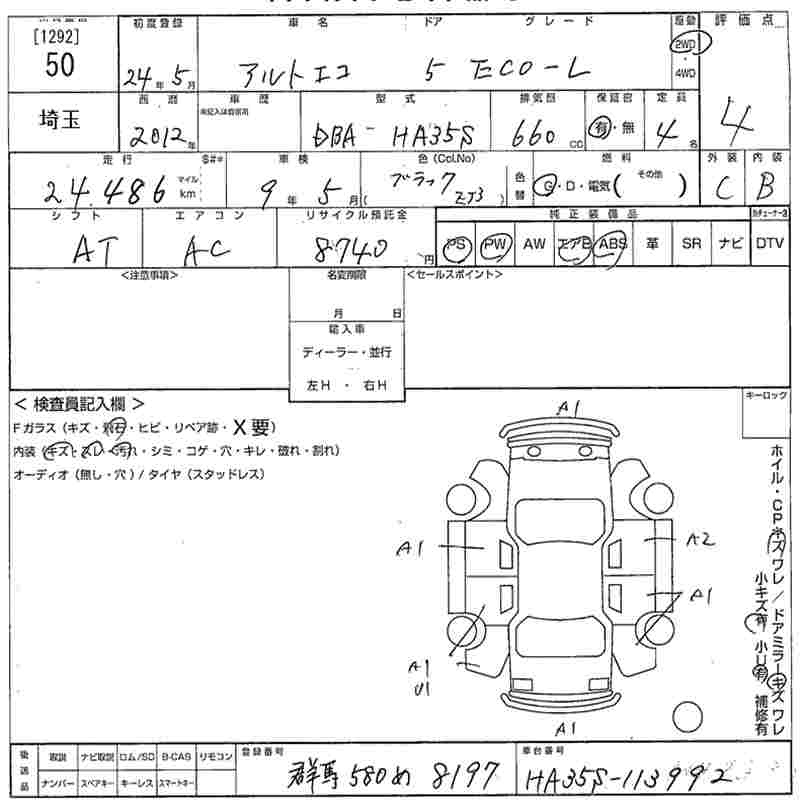 [1292]
50
初度登録
24年5月
車名 ドア グレード
アルトエコ 5 ECO-L
駆動
2WD
4WD
評価点
4
埼玉
西暦
2012年
車歴
未記入は自家用
型式
DBA-HA35S
排気量
660cc
保証書
有・無
定員
4名
走行
24,486
マイル
km
$#*
車検
9年5月
色(Col.No)
ブラック
(ZJ3)
色替
燃料
G・D・電気( その他 )
外装
C
内装
B
シフト
AT
エアコン
AC
リサイクル預託金
8740円
純正装備品
PS PW AW エアB ABS 革 SR ナビ
DTV
<注意事項>
名変期限
月 日
輸入車
ディーラー・並行
左H ・ 右H
<セールスポイント>
<検査員記入欄>
Fガラス(キズ・飛石・ヒビ・リペア跡・X要)
内装(キズ・スレ・汚れ・シミ・コゲ・穴・キレ・破れ・割れ)
オーディオ(無し・穴)/タイヤ(スタッドレス)
キーロック
A1
A1
A2
A1
A1
U1
A1
ホイル・CPキズワレ/ドアミラーキズワレ
小キズ有 小U有 補修有
後送品
取説 ナビ取説 ロム/SD B-CAS リモコン
ナンバー スペアキー キーレス スマートキー
登録番号
群馬 580 め 8197
車台番号
HA35S-113992